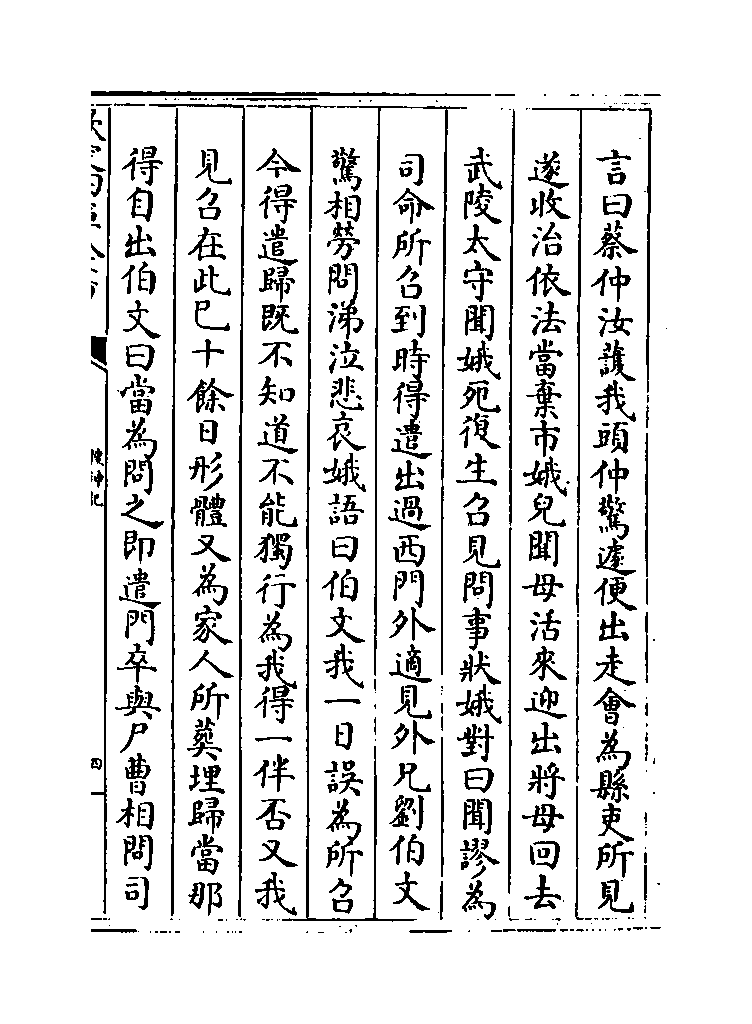 言曰蔡仲汝護我頭仲驚遽便出走會為縣吏所見
遂收治依法當棄市娥兒聞母活來迎出將母回去
武陵太守聞娥死復生召見問事狀娥對曰聞謬為
司命所召到時得遣出過西門外適見外兄劉伯文
驚相勞問涕泣悲哀娥語曰伯文我一日誤為所召
今得遣歸既不知道不能獨行為我得一伴否又我
見召在此已十餘日形體又為家人所葬埋歸當那
得自出伯文曰當為問之即遣門卒與尸曹相問司
搜神記
四